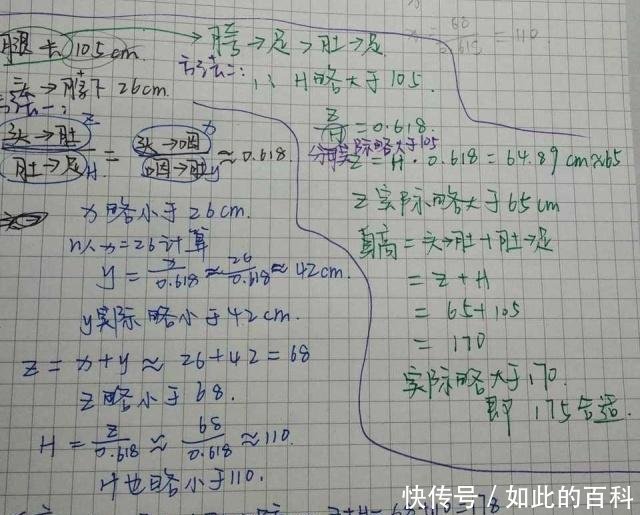 腿长 105cm. → 胯→足 > 肚→足
头→脖下 26cm.
方法一:
头→肚 z / 肚→足 H = 头→咽 x / 咽→肚 y ≈ 0.618
x略小于26cm.
以x=26计算
y = x/0.618 ≈ 26/0.618 ≈ 42cm.
y实际略小于42cm.
z = x+y ≈ 26+42 = 68
z略小于68.
H = z/0.618 ≈ 68/0.618 ≈ 110.
H也略小于110.
方法二: ∴ H略大于105.
z/H = 0.618.
实际略大于105
z = H · 0.618 = 64.89 cm ≈65
z实际略大于65cm
身高 = 头→肚+肚→足
= z + H
= 65+105
= 170
实际略大于170.
即 175合适.
= 110
快传号 / 如此的百科